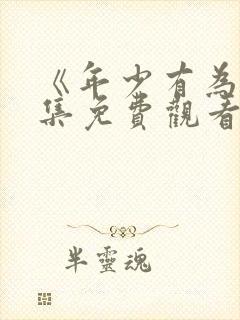 《年少有為
集免費觀看
半靈魂